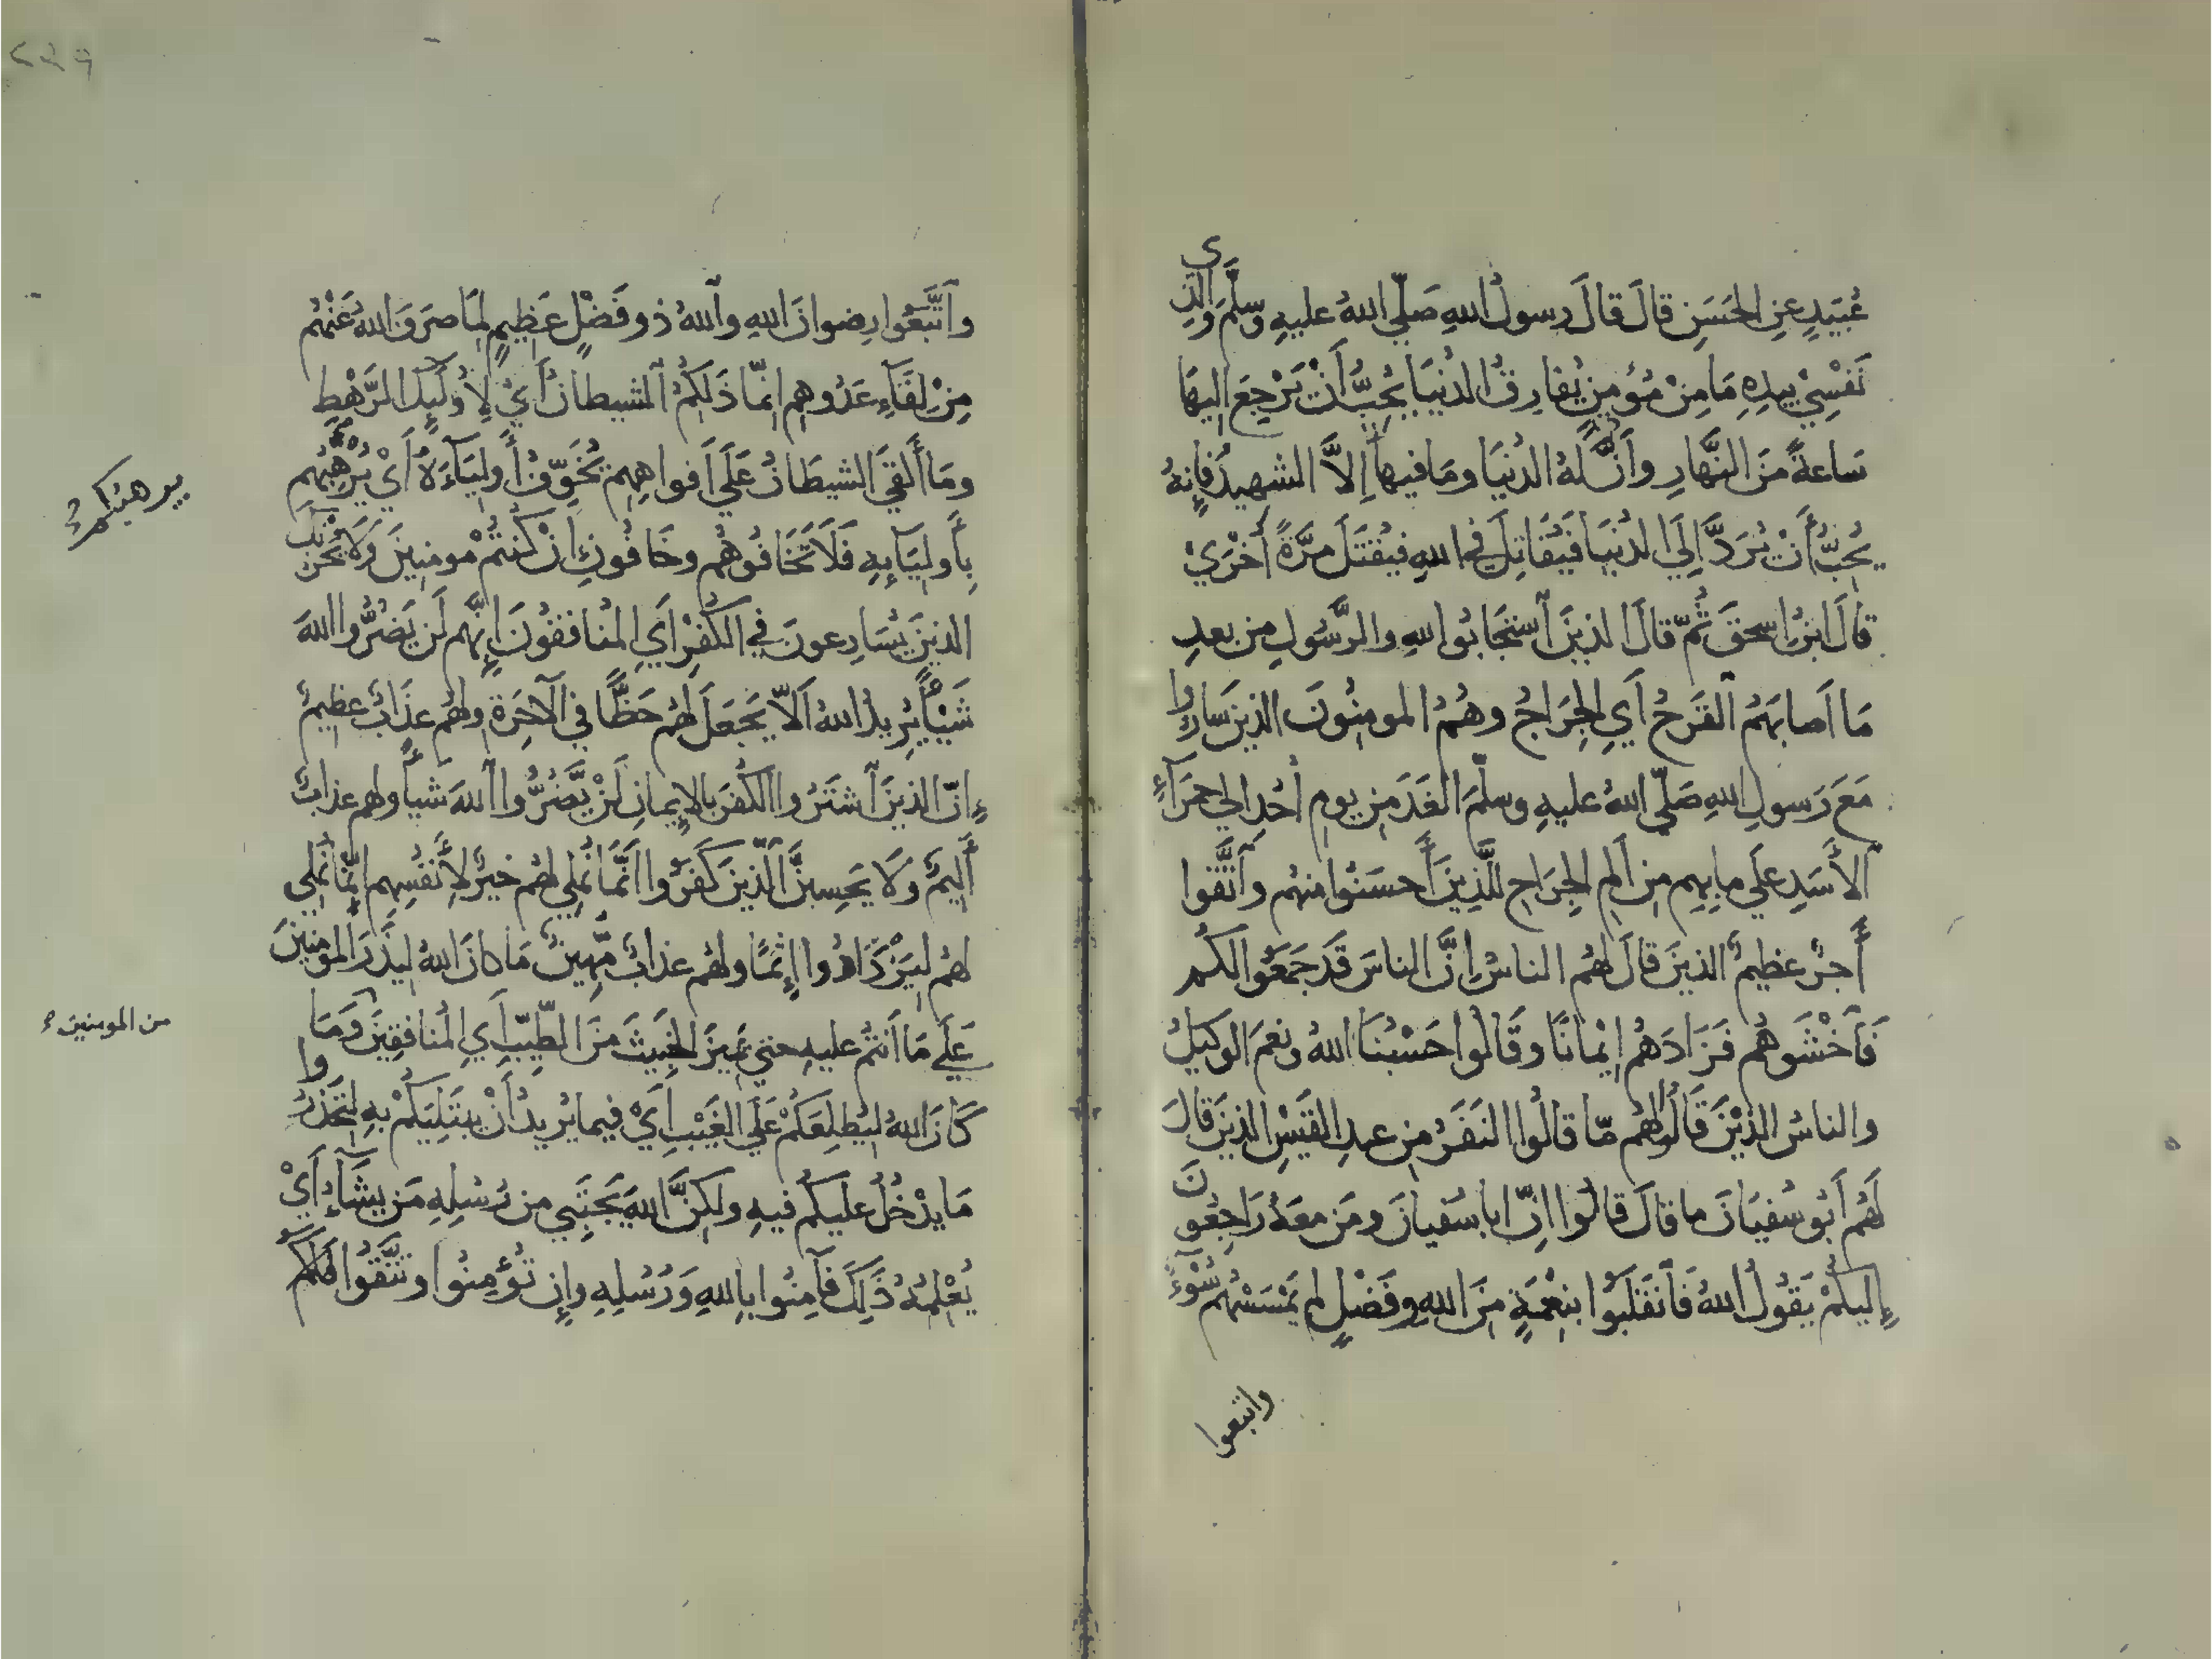 عُبَيدٍ عنِ الحَسَنِ قالَ قالَ رسولُ اللهِ صَلّي اللهُ عليهِ وسلّمَ والذِي
نَفْسِيْ بيدِهِ مَا مِنْ مُؤمنٍ يُفارقُ الدُنيَا يُحِبُّ أَنْ يَرْجِعَ اليهَا
سَاعةً منَ النَّهارِ وأنَّ لهُ الدنيَا ومَا فيهَا إلاَّ الشهيدُ فإنهُ
يُحِبُّ أَنْ يُرَدَّ إِلَي الدُنيَا فَيُقَاتِلَ في اللهِ فيُقتَلَ مرَّةً أُخْرَيْ
قالَ ابنُ اسحقَ ثُمّ قالَ الذينَ آستجَابُوا للهِ والرَّسُولِ من بعدِ
مَا اَصابَهَمُ القَرحُ أيِ الجِرَاحُ وهُمُ المومنُونَ الذينَ سَارُوا
مَعَ رَسولِ اللهِ صَلّي اللهُ عليهِ وسلّمَ الغَدَ من يومِ أُحُدٍ الي حمرَآءِ
آلأَسَدِ علَي ما بِهِم من اَلَمِ الجِرَاحِ للَّذِينَ أَحسَنُوا منهُم وَآتَّقوا
أَجرٌ عظيمٌ الذينَ قالَ لهُم الناسُ إنَّ الناسَ قَد جَمَعُوا لكُم
فَآخْشَوهُم فَزَادَهُم إيْمانًا وقَالُوا حَسْبُنَا اللهُ ونعمَ الوكيلُ
والناسُ الذيْنَ قَالُوا لهُم مّا قالُوا النَفَرُ من عبدِ القَيسِ الذينَ قالَ
لَهُم أَبُو سُفيَانَ ما قالَ قالُوا انِّ ابا سُفيانَ ومَن معَهُ رَاجِعُونَ
إليكُمْ يَقُولُ اللهُ فَآنقَلَبُوا بنِعْمَةٍ منَ اللهِ وفَضْلٍ لم يَمْسَسْهُم سُوْءٌ
واتبعوا
وآتَّبَعُوا رِضوانَ اللهِ وآللهُ ذو فَضْلٍ عَظِيمٍ لمَا صَرَفَ اللهُ عَنْهُم
مِنْ لِقَآءِ عَدُوِهِم انِمّا ذَلكُمُ آلشيطانُ أَيْ لِأُولَئِكَ الرَّهْطِ
ومَا أَلقَي الشيطَانُ عَلَي اَفواهِهِم يُخَوِّفُ أَوليَآءَهُ أَيْ يُرْهِبُهُم
بأَوليَآئِهِ فَلَا تَخَافُوهُم وخَافُونِ إنْ كُنتُمْ مومنينَ وَلَا يُحْزنكَ
الذينَ يُسَارِعونَ في الكُفرِ أيِ المُنافقُونَ إنَّهم لَن يَضُرُّوا اللهَ
شَيْأً يُريدُ اللهُ اَلاّ يَجعَلَ لهُم حَظًّا في آلآخرَةِ ولهُم عَذَابٌ عظيمٌ
إنّ الذينَ آشتَرُوا الكُفرَ بالإيمانِ لَنْ يَّضُرُّوا آللهَ شَيأً ولهم عذابٌ
أَليمٌ وَلَا يَحسِبنَّ الَّذينَ كَفَرُوا أَنَّمَا نُملِي لهُم خيرٌ لأَنفُسِهِم انمّا نُملِي
لهُم ليَزْدَادُوا إثمًا ولهُم عذابٌ مُّهِينٌ مَا كانَ اللهُ ليَذَرَ المومنينَ
عَلَي مَا اَنتُم عليهِ حتي يَمِيزَ الخَبِيثَ منَ الطَّيِّبِ أيِ المُنافقينَ وَمَا
كَانَ اللهُ ليُطلِعَكُمْ عَلَي الغَيْبِ أَيْ فيما يُريدُ أَنْ يبتَلِيَكُمْ بهِ لتَحْذَرُوا
مَا يدْخُلُ عليكُم فيهِ ولكنَّ اللهَ يَجتَبِي من رُسُلِهِ مَن يشَآءُ أَيْ
يُعْلِمُهُ ذَلِكَ فآمِنُوا باللهِ وَرُسُلِهِ وإن تُؤمِنُوا وتَتَّقُوا فَلَكُم
يرهبكم
من المومنين